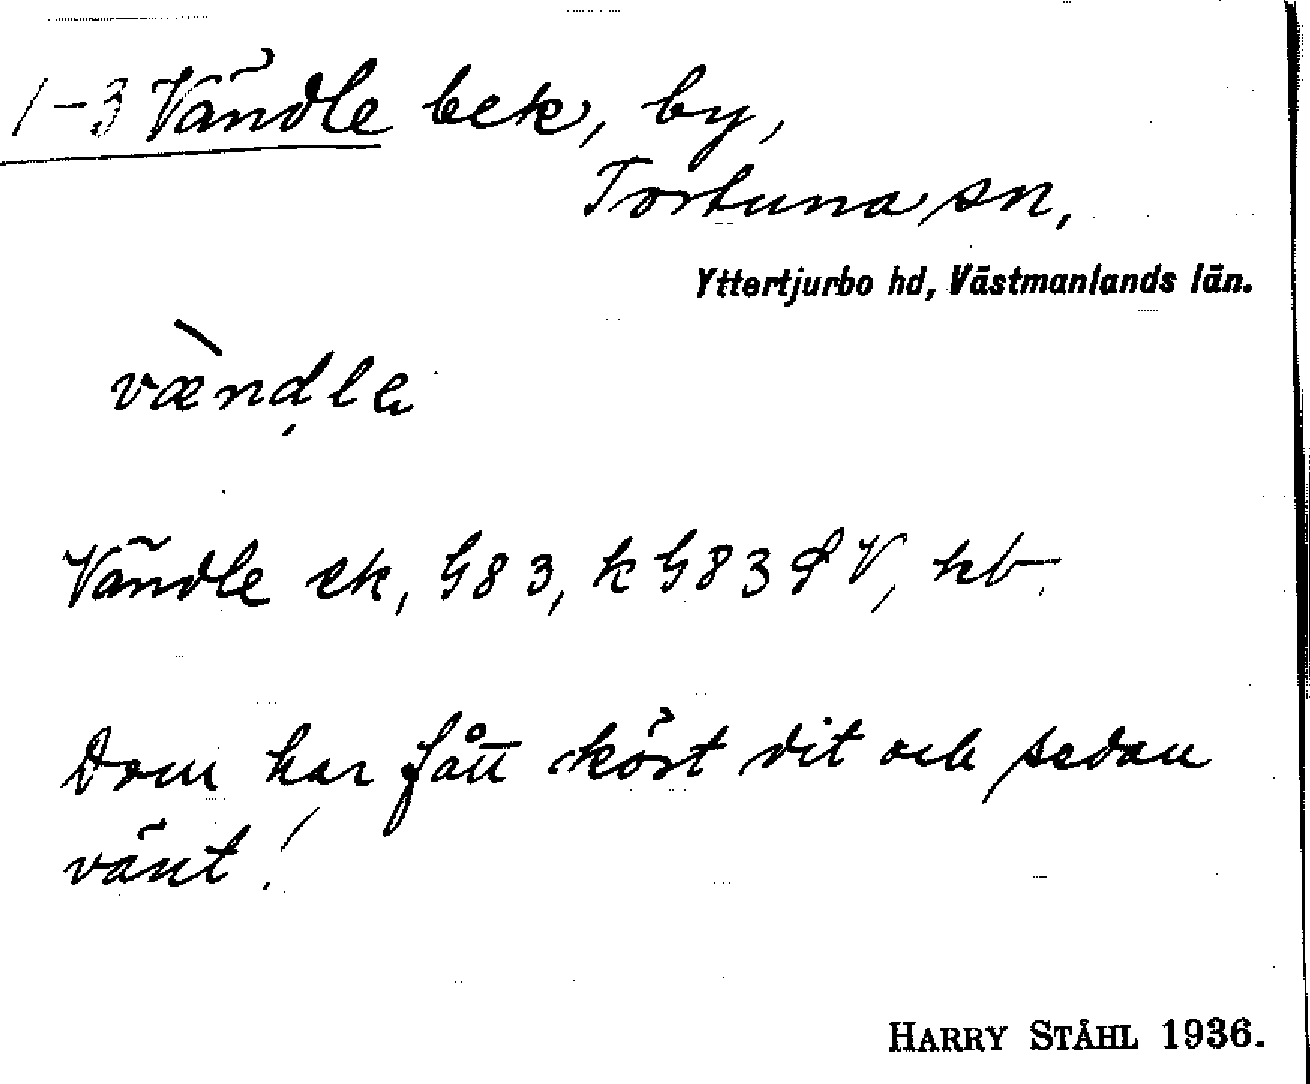 1-3 Vändle bek, by,
Tortuna sn,
Yttertjurbo hd, Västmanlands län.
vændle
Vändle ek, G83, k G83 SV, hb.
Dom har fått kört dit och sedan
vänt!
HARRY STÅHL 1936.